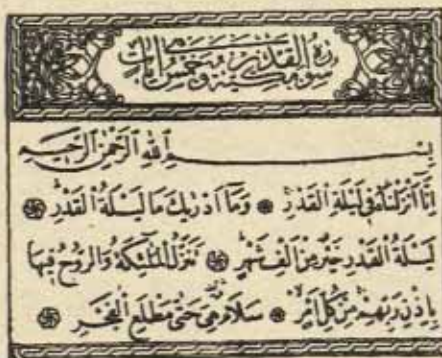 سورة القدر مكية وهي خمس آيات
بِسْمِ اللهِ الرَّحْمٰنِ الرَّحِيمِ
اِنَّا اَنْزَلْنَاهُ فِى لَيْلَةِ الْقَدْرِ ۝ وَمَا اَدْرٰيكَ مَا لَيْلَةُ الْقَدْرِ ۝
لَيْلَةُ الْقَدْرِ خَيْرٌ مِنْ اَلْفِ شَهْرٍ ۝ تَنَزَّلُ الْمَلٰئِكَةُ وَالرُّوحُ فِيهَا
بِاِذْنِ رَبِّهِمْ مِنْ كُلِّ اَمْرٍ ۝ سَلَامٌ هِىَ حَتّٰى مَطْلَعِ الْفَجْرِ ۝